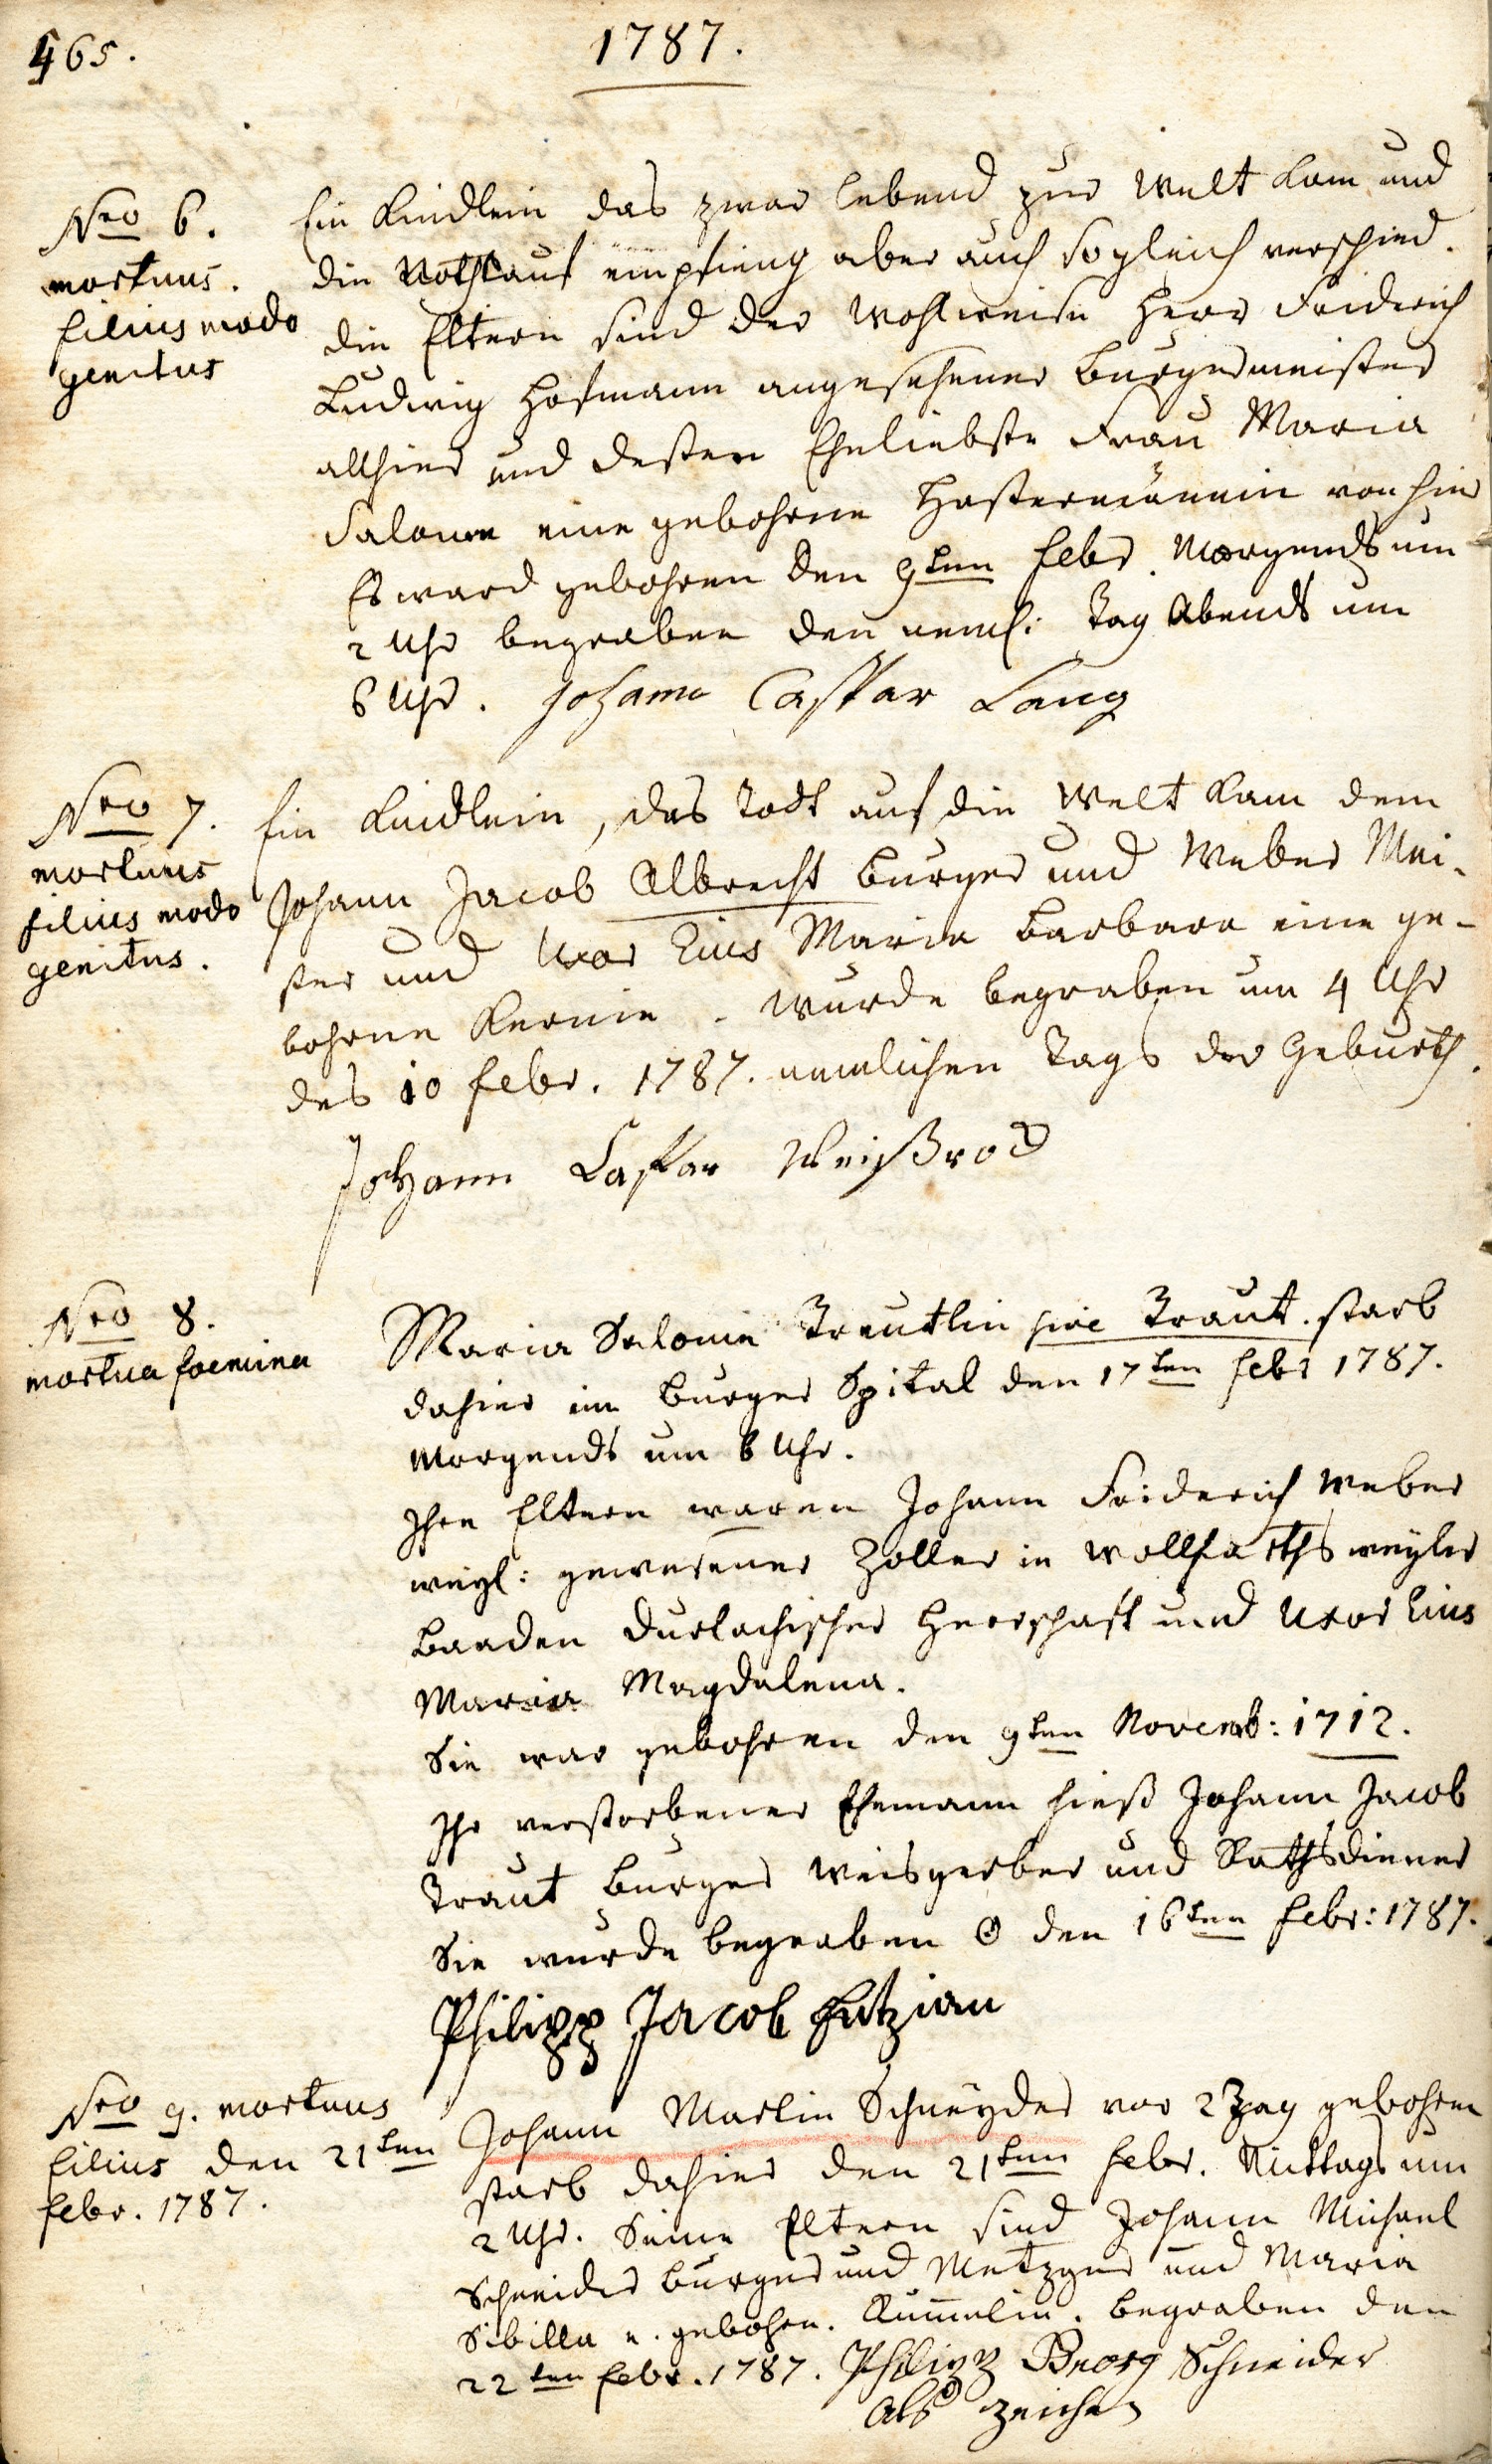 465.
1787.
Nro 6.
mortuus.
filius modo
genitus
Ein Kindlein das zwar lebend zur Welt kam und
die Nothtauf empfieng aber auch sogleich verschied.
die Eltern sind der Wohlweise Herr Friderich
Ludwig Hofmann angesehener Burgermeister
allhier und dessen Eheliebste Frau Maria
Salome eine gebohrne von hier
Es ward gebohren den 9ten Febr. Morgends um
2 Uhr begraben den neml: Tag Abends um
6 Uhr. Johann Caspar Lang
Nro 7.
mortuus
filius modo
genitus.
Ein Kindlein, das todt auf die Welt kam dem
Johann Jacob Albrecht Burger und Weber Mei-
ster und Uxor Eius Maria Barbara eine ge-
bohrne Kernin. wurde begraben um 4 Uhr
des 10 Febr. 1787. nemlichen Tags der Geburth.
Johann Caspar Weißrod
Nro 8.
mortua foemina
Maria Salome Treutlin sive Traut. starb
dahier im Burger Spital den 17ten Febr 1787.
Morgends um 6 Uhr.
Ihre Eltern waren Johann Friderich Weber
weyl: gewesener Zoller in Wollfarthsweyler
Baaden Durlachischer Herrschaft und Uxor Eius
Maria Magdalena.
Sie war gebohren den 9ten Novemb: 1712.
Ihr verstorbener Ehemann hieß Johann Jacob
Traut Burger Weisgerber und Rathsdiener
Sie wurde begraben ☉ den 16ten Febr: 1787.
Philipp Jacob
Nro 9. mortuus
filius den 21ten
Febr. 1787.
Johann Martin Schneyder vor 2 Tag gebohren
starb dahier den 21ten Febr. Mittags um
2 Uhr. Seine Eltern sind Johann Michael
Schneider Burger und Metzger und Maria
Sibilla e. gebohrn. Kummelin. begraben den
22ten Febr. 1787. Philipp Georg Schneider
als zeichen